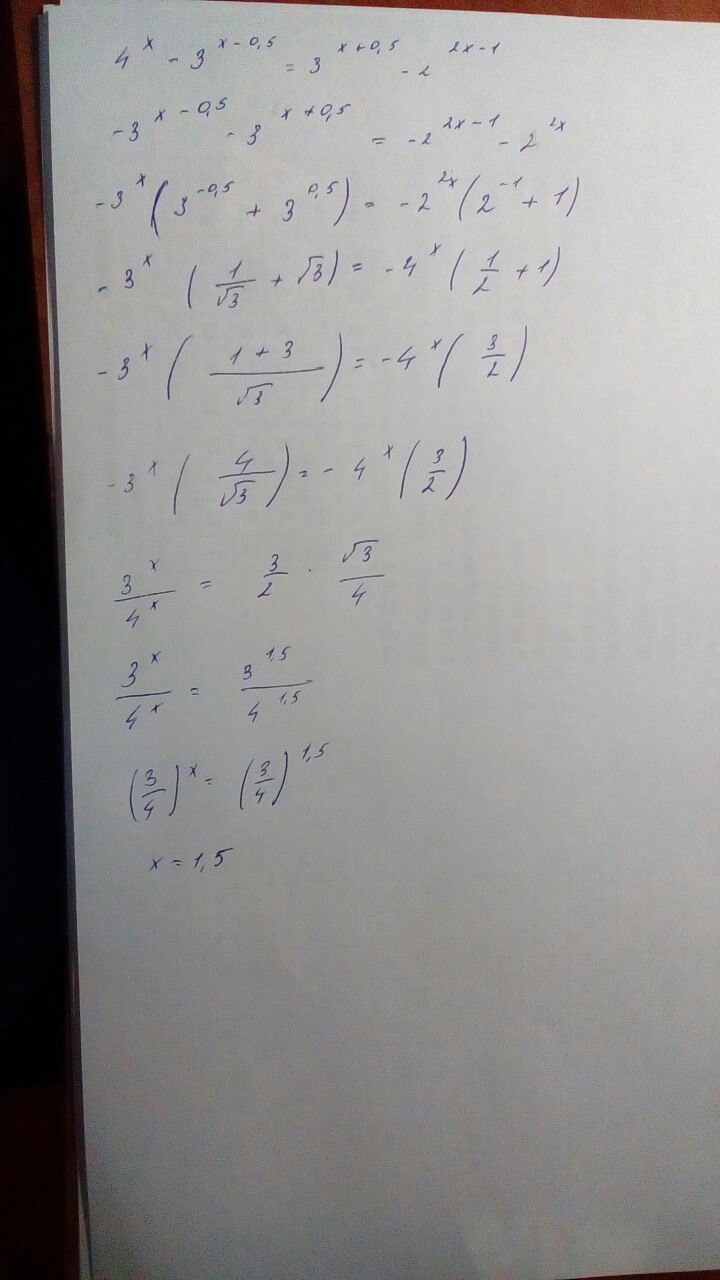 4^x - 3^{x-0,5} = 3^{x+0,5} - 2^{2x-1}
-3^{x-0,5} - 3^{x+0,5} = -2^{2x-1} - 2^{2x}
-3^x (3^{-0,5} + 3^{0,5}) = -2^{2x} (2^{-1} + 1)
-3^x (1/√3 + √3) = -4^x (1/2 + 1)
-3^x ((1+3)/√3) = -4^x (3/2)
-3^x (4/√3) = -4^x (3/2)
3^x/4^x = 3/2 · √3/4
3^x/4^x = 3^{1,5}/4^{1,5}
(3/4)^x = (3/4)^{1,5}
x = 1,5